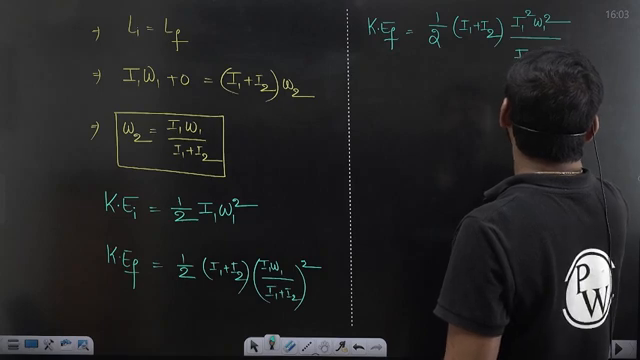 ⇒ Li = Lf
⇒ I₁ω₁ + 0 = (I₁+I₂)ω₂
⇒ ω₂ = I₁ω₁ / I₁+I₂
K.Ei = 1/2 I₁ω₁²
K.Ef = 1/2 (I₁+I₂) (I₁ω₁ / I₁+I₂)²
K.Ef = 1/2 (I₁+I₂) I₁²ω₁² / I
16:03
PW